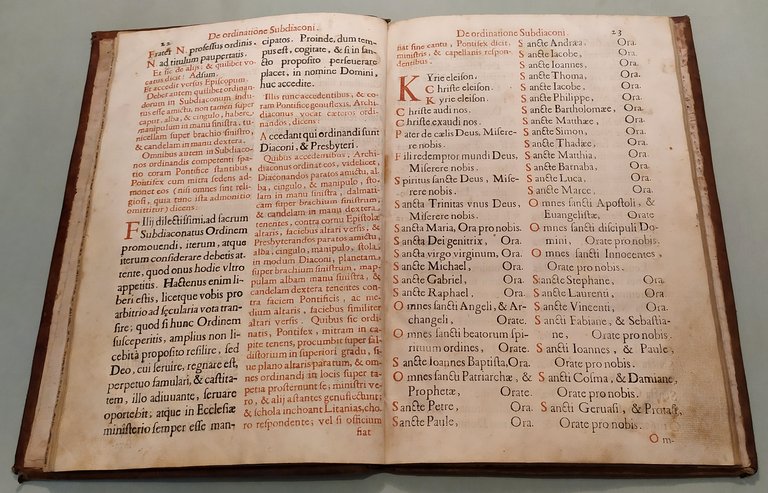 22
De ordinatione Subdiaconi.
Frater N. professus ordinis,
N. ad titulum paupertatis.
Et sic de alijs, & quilibet vo-
catus dicit: Adsum.
Et accedit versus Episcopum.
Debet autem quilibet ordinan-
dorum in Subdiaconum indu-
tus esse amictu, non tamen super
caput, alba, & cingulo, habere,
manipulum in manu sinistra, tu-
nicellam super brachio sinistro,
& candelam in manu dextera.
Omnibus autem in Subdiaco-
nos ordinandis competenti spa-
tio coram Pontifice stantibus,
Pontifex cum mitra sedens ad-
monet eos (nisi omnes sint reli-
giosi, quia tunc ista admonitio
omittitur) dicens.
Filij dilectissimi, ad sacrum
Subdiaconatus Ordinem
promouendi, iterum, atque
iterum considerare debetis at-
tente, quod onus hodie vltro
appetitis. Hactenus enim li-
beri estis, licetque vobis pro
arbitrio ad sæcularia vota tran-
sire; quod si hunc Ordinem
susceperitis, amplius non li-
cebit à proposito resilire, sed
Deo, cui seruire, regnare est,
perpetuo famulari, & castita-
tem, illo adiuuante, seruare
oportebit; atque in Ecclesiæ
ministerio semper esse man-
cipatos. Proinde, dum tem-
pus est, cogitate, & si in san-
cto proposito perseuerare
placet, in nomine Domini,
huc accedite.
Illis tunc accedentibus, & co-
ram Pontifice genuflexis, Archi-
diaconus vocat cæteros ordi-
nandos, dicens:
Accedant qui ordinandi sunt
Diaconi, & Presbyteri.
Quibus accedentibus, Archi-
diaconus ordinat eos, videlicet,
Diaconandos paratos amictu, al-
ba, cingulo, & manipulo, sto-
lam in manu sinistra, dalmati-
cam super brachium sinistrum,
& candelam in manu dextera,
tenentes, contra cornu Epistolæ
altaris, faciebus altari versis, &
Presbyterandos paratos amictu,
alba, cingulo, manipulo, stola,
in modum Diaconi, planetam,
super brachium sinistrum, map-
pulam albam manu sinistra, &
candelam dextera tenentes con-
tra faciem Pontificis, ac me-
dium altaris, faciebus similiter
altari versis. Quibus sic ordi-
natis, Pontifex, mitram in ca-
pite tenens, procumbit super fal-
distorium in superiori gradu, si-
ue plano altaris paratum, & om-
nes ordinandi in locis super ta-
petia prosternunt se; ministri ve-
rò, & alij astantes genuflectunt;
& schola inchoant Litanias, cho-
ro respondente; vel si officium
fiat
De ordinatione Subdiaconi.
23
fiat sine cantu, Pontifex dicit,
ministris, & capellanis respon-
dentibus.
Kyrie eleison.
Christe eleison.
Kyrie eleison.
Christe audi nos.
Christe exaudi nos.
Pater de cælis Deus, Misere-
re nobis.
Fili redemptor mundi Deus,
Miserere nobis.
Spiritus sancte Deus, Mise-
rere nobis.
Sancta Trinitas vnus Deus,
Miserere nobis.
Sancta Maria, Ora pro nobis.
Sancta Dei genitrix, Ora.
Sancta virgo virginum, Ora.
Sancte Michael, Ora.
Sancte Gabriel, Ora.
Sancte Raphael, Ora.
Omnes sancti Angeli, & Ar-
changeli, Orate.
Omnes sancti beatorum spi-
rituum ordines, Orate.
Sancte Ioannes Baptista, Ora.
Omnes sancti Patriarchæ, &
Prophetæ, Orate.
Sancte Petre, Ora.
Sancte Paule, Ora.
Sancte Andræa, Ora.
Sancte Iacobe, Ora.
Sancte Ioannes, Ora.
Sancte Thoma, Ora.
Sancte Iacobe, Ora.
Sancte Philippe, Ora.
Sancte Bartholomæe, Ora.
Sancte Matthæe, Ora.
Sancte Simon, Ora.
Sancte Thadæe, Ora.
Sancte Matthia, Ora.
Sancte Barnaba, Ora.
Sancte Luca, Ora.
Sancte Marce, Ora.
Omnes sancti Apostoli, &
Euangelistæ, Orate
Omnes sancti discipuli Do-
mini, Orate pro nobis.
Omnes sancti Innocentes,
Orate pro nobis.
Sancte Stephane, Ora.
Sancte Laurenti, Ora.
Sancte Vincenti, Ora.
Sancti Fabiane, & Sebastia-
ne, Orate pro nobis.
Sancti Ioannes, & Paule,
Orate pro nobis.
Sancti Cosma, & Damiane,
Orate pro nobis.
Sancti Geruasi, & Protasi,
Orate pro nobis.
Om-